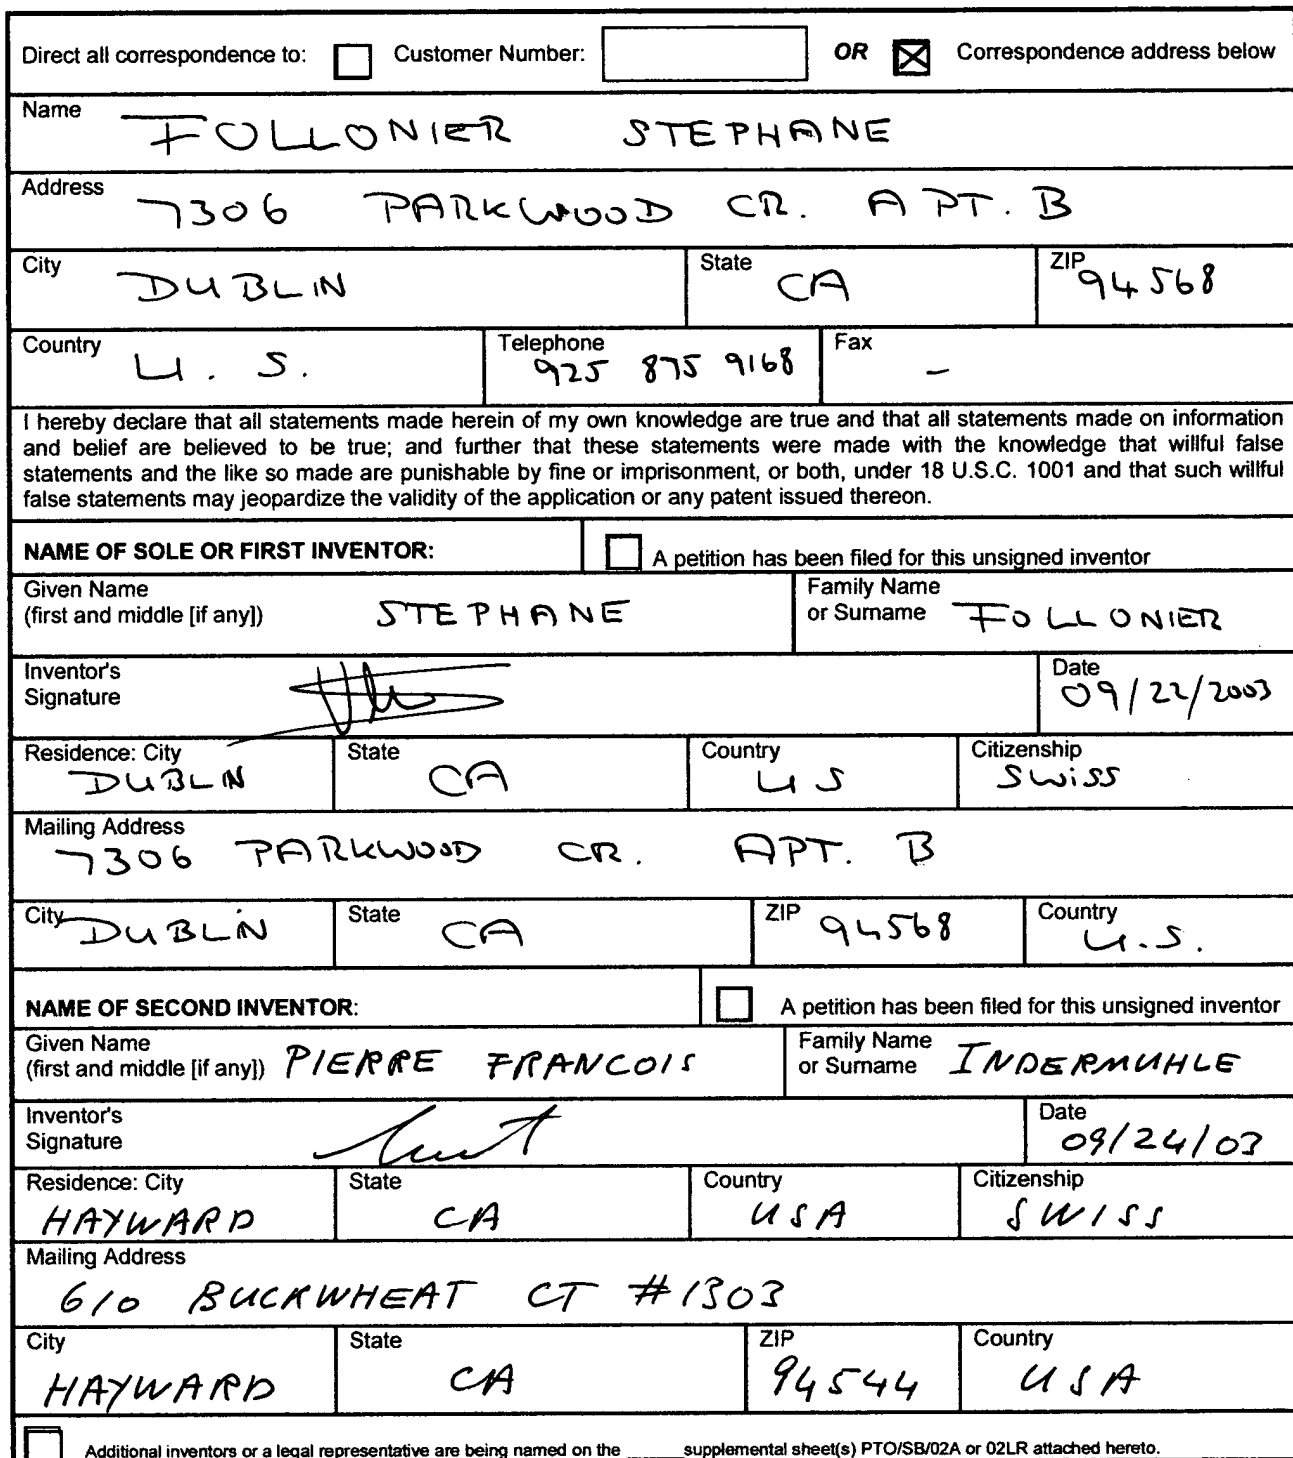 Direct all correspondence to: Customer Number: OR Correspondence address below
Name
FOLLONIER STEPHANE
Address
7306 PARKWOOD CR. APT. B
City State ZIP
DUBLIN CA 94568
Country Telephone Fax
U. S. 925 875 9168 -
I hereby declare that all statements made herein of my own knowledge are true and that all statements made on information
and belief are believed to be true; and further that these statements were made with the knowledge that willful false
statements and the like so made are punishable by fine or imprisonment, or both, under 18 U.S.C. 1001 and that such willful
false statements may jeopardize the validity of the application or any patent issued thereon.
NAME OF SOLE OR FIRST INVENTOR: A petition has been filed for this unsigned inventor
Given Name Family Name
(first and middle [if any]) STEPHANE or Surname FOLLONIER
Inventor's Date
Signature 09/22/2003
Residence: City State Country Citizenship
DUBLIN CA US SWISS
Mailing Address
7306 PARKWOOD CR. APT. B
City DUBLIN State CA ZIP 94568 Country U.S.
NAME OF SECOND INVENTOR: A petition has been filed for this unsigned inventor
Given Name Family Name
(first and middle [if any]) PIERRE FRANCOIS or Surname INDERMUHLE
Inventor's Date
Signature 09/24/03
Residence: City State Country Citizenship
HAYWARD CA USA SWISS
Mailing Address
610 BUCKWHEAT CT #1303
City State ZIP Country
HAYWARD CA 94544 USA
Additional inventors or a legal representative are being named on the _____ supplemental sheet(s) PTO/SB/02A or 02LR attached hereto.